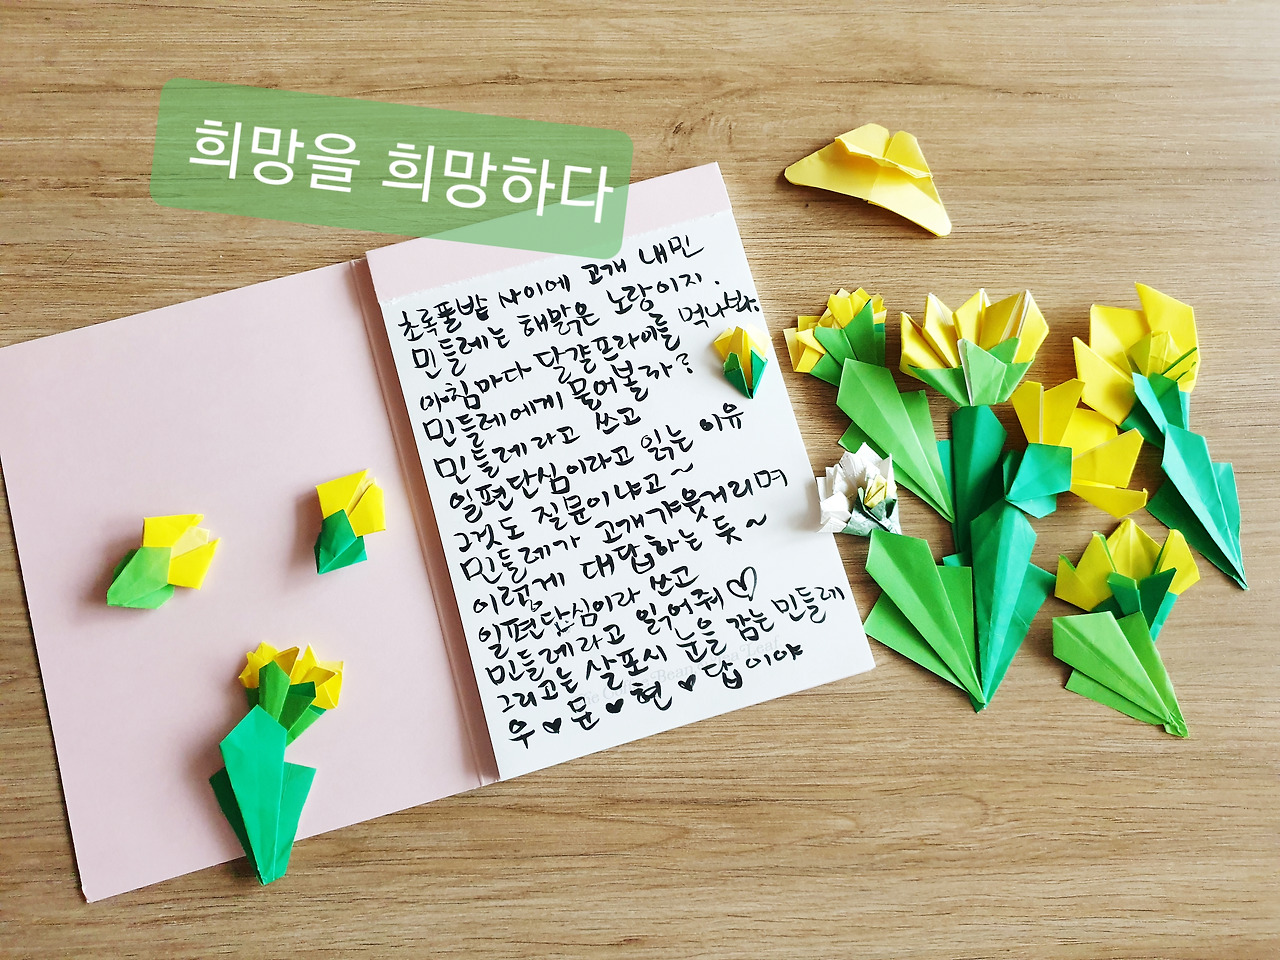 희망을 희망하다
초록풀밭 사이에 고개 내민
민들레는 해맑은 노랑이지.
아침마다 달걀프라이를 먹나봐.
민들레에게 물어볼까?
민들레라고 쓰고
일편단심이라고 읽는 이유
그것도 질문이냐고~
민들레가 고개갸웃거리며
이렇게 대답하는 듯~
일편단심이라 쓰고
민들레라고 읽어줘♡
그리고는 살포시 눈을 감는 민들레
우♥문♥현♥답이야